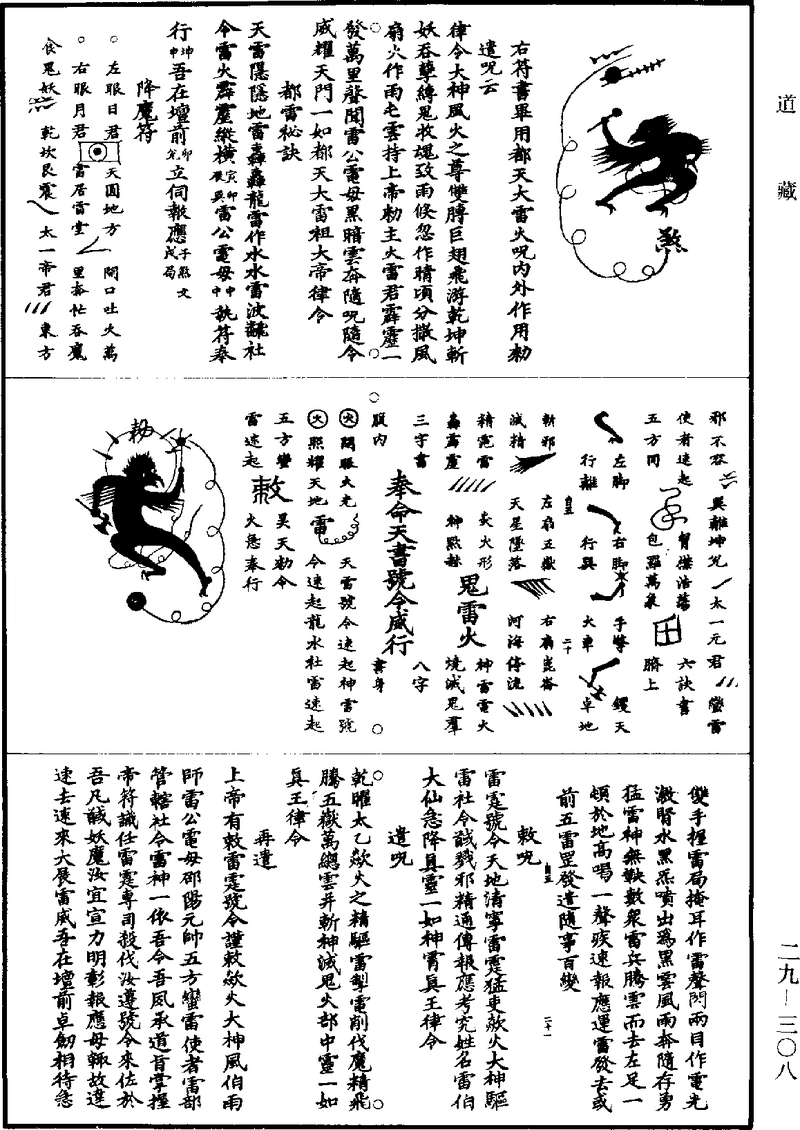 道藏
二九—三〇八
煞
右符書畢用都天大雷火呪內外作用勑
遣呪云
律令大神風火之尊雙膊巨翅飛游乾坤斬
妖吞孽縛鬼攷魂致雨倐忽作晴頃分撒風
扇火作雨屯雲持上帝勑主火雷君霹靂一
發萬里聲聞雷公電母黑暗雲奔隨呪隨令
威耀天門一如都天大雷祖大帝律令
都雷秘訣
天雷隱隱地雷轟轟龍雷作水水雷波翻社
令雷火霹靂縱橫寅卯辰巽雷公電母中中執符奉
行坤中吾在壇前卯兊立伺報應子煞文戌局
降魔符
左眼日君 天圓地方 開口吐火萬
右眼月君 雷居雷堂 里奔忙吞魔
食鬼妖 乾坎艮震 太一帝君 東方
邪不容 巽離坤兊 太一元君 蠻雷
使者速起 胷襟浩蕩 六訣書
五方同 包羅萬象 臍上
左脚 右脚 手臂 钁天
行離 行巽 火車 卓地
斬邪 左扇五嶽 右扇崑崙
滅精 天星墜落 河海停流
精霓雷 炎火形 神雷電火
轟霹靂 神黙赫 燒滅鬼羣
鬼雷火
三字書 八字
奉命天書號令威行
腹內 書身
火 開眼火光 天雷號令速起神雷號
火 照耀天地 雷 令速起龍水社雷速起
五方蠻 昊天勑令
雷速起 敕 火急奉行
勑
雙手握雷局掩耳作雷聲閃兩目作電光
激腎水黑炁噴出爲黑雲風雨奔隨存勇
猛雷神無鞅數衆雷兵騰雲而去左足一
頓於地高喝一聲疾速報應運雷發去或
前五雷罡發遣隨事百變
敕呪
雷霆號令天地清寧雷霆猛吏歘火大神驅
雷社令馘戮邪精通傳報應考究姓名雷伯
大仙急降真靈一如神霄真王律令
遣呪
乾曜太乙歘火之精驅雷掣電削伐魔精飛
騰五嶽萬總雲并斬神滅鬼火部中靈一如
真王律令
再遣
上帝有敕雷霆號令謹敕歘火大神風伯雨
師雷公電母邵陽元帥五方蠻雷使者雷部
管轄社令雷神一依吾令吾夙承道旨掌握
帝符誠任雷霆專司殺伐汝遵號令來佐於
吾凡馘妖魔汝宜宣力明彰報應毋輙故違
速去速來大展雷威吾在壇前卓劒相待急